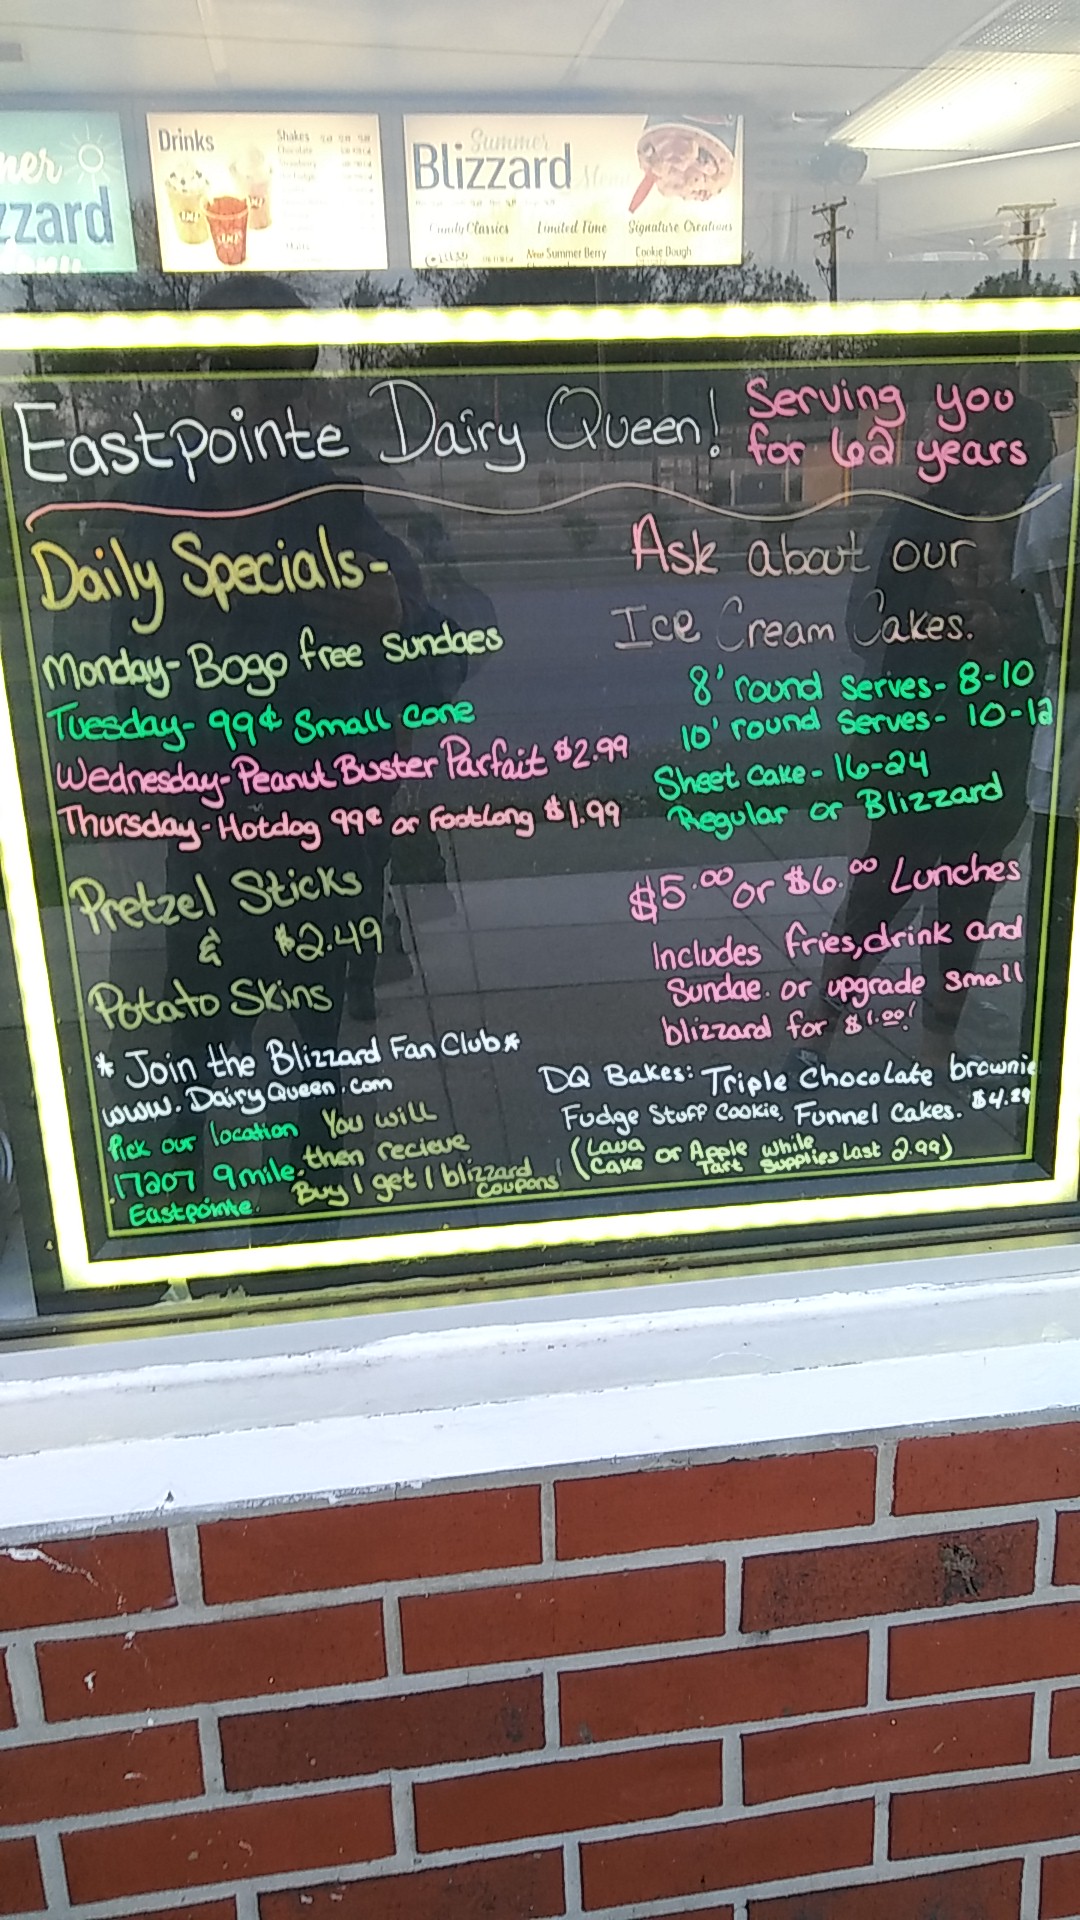 ner
zzard
Drinks
Shakes
Summer
Blizzard
Candy Classics
Limited Time
Signature Creations
New Summer Berry
Cookie Dough
Eastpointe Dairy Queen!
Serving you
for 62 years
Daily Specials-
Monday- Bogo free sundaes
Tuesday- 99¢ Small cone
Wednesday- Peanut Buster Parfait $2.99
Thursday- Hotdog 99¢ or Footlong $1.99
Pretzel Sticks
& $2.49
Potato Skins
* Join the Blizzard Fan Club *
www.DairyQueen.com
Pick our location
17207 9mile.
Eastpointe.
You will
then recieve
Buy 1 get 1 blizzard
coupons!
Ask about our
Ice Cream Cakes.
8' round serves- 8-10
10' round serves- 10-12
Sheet cake- 16-24
Regular or Blizzard
$5.00 or $6.00 Lunches
Includes fries, drink and
Sundae. or upgrade small
blizzard for $1.00!
DQ Bakes: Triple Chocolate brownie
Fudge Stuff Cookie, Funnel Cakes. $4.29
(Lava Cake or Apple Tart while supplies last 2.99)